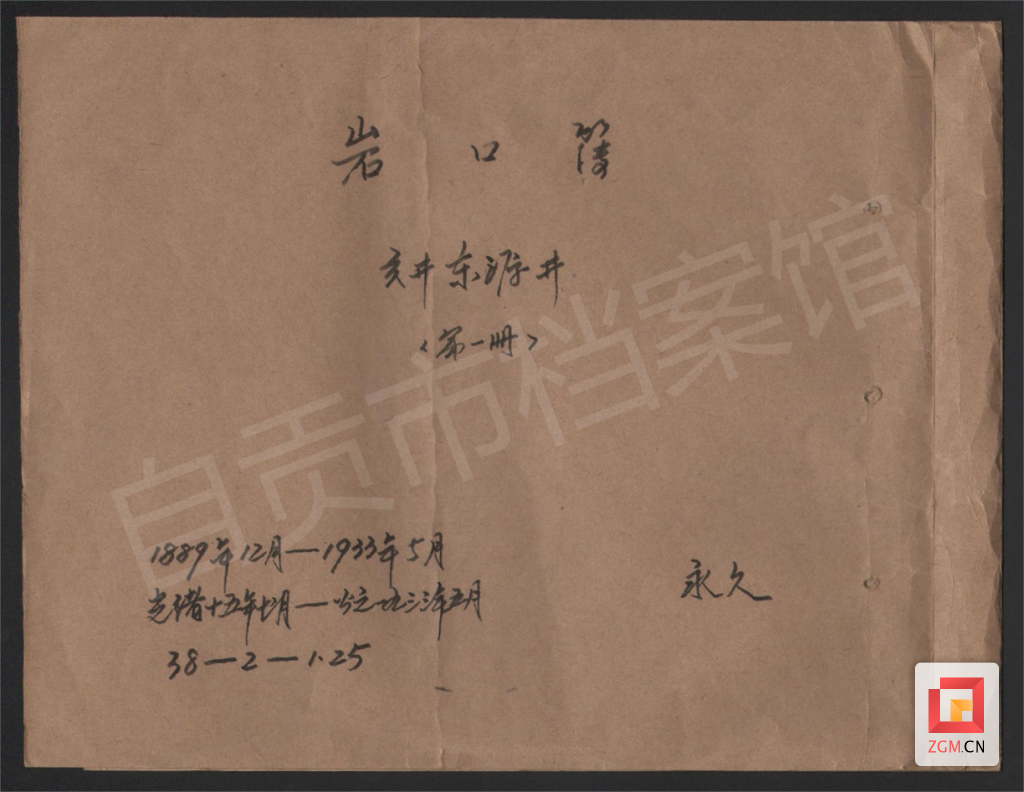 岩口簿
亥井东源井
<第一册>
1889年12月—1933年5月
光绪十五年十二月—公元一九三三年五月
38—2—1.25
永久
自贡市档案馆
ZGM.CN